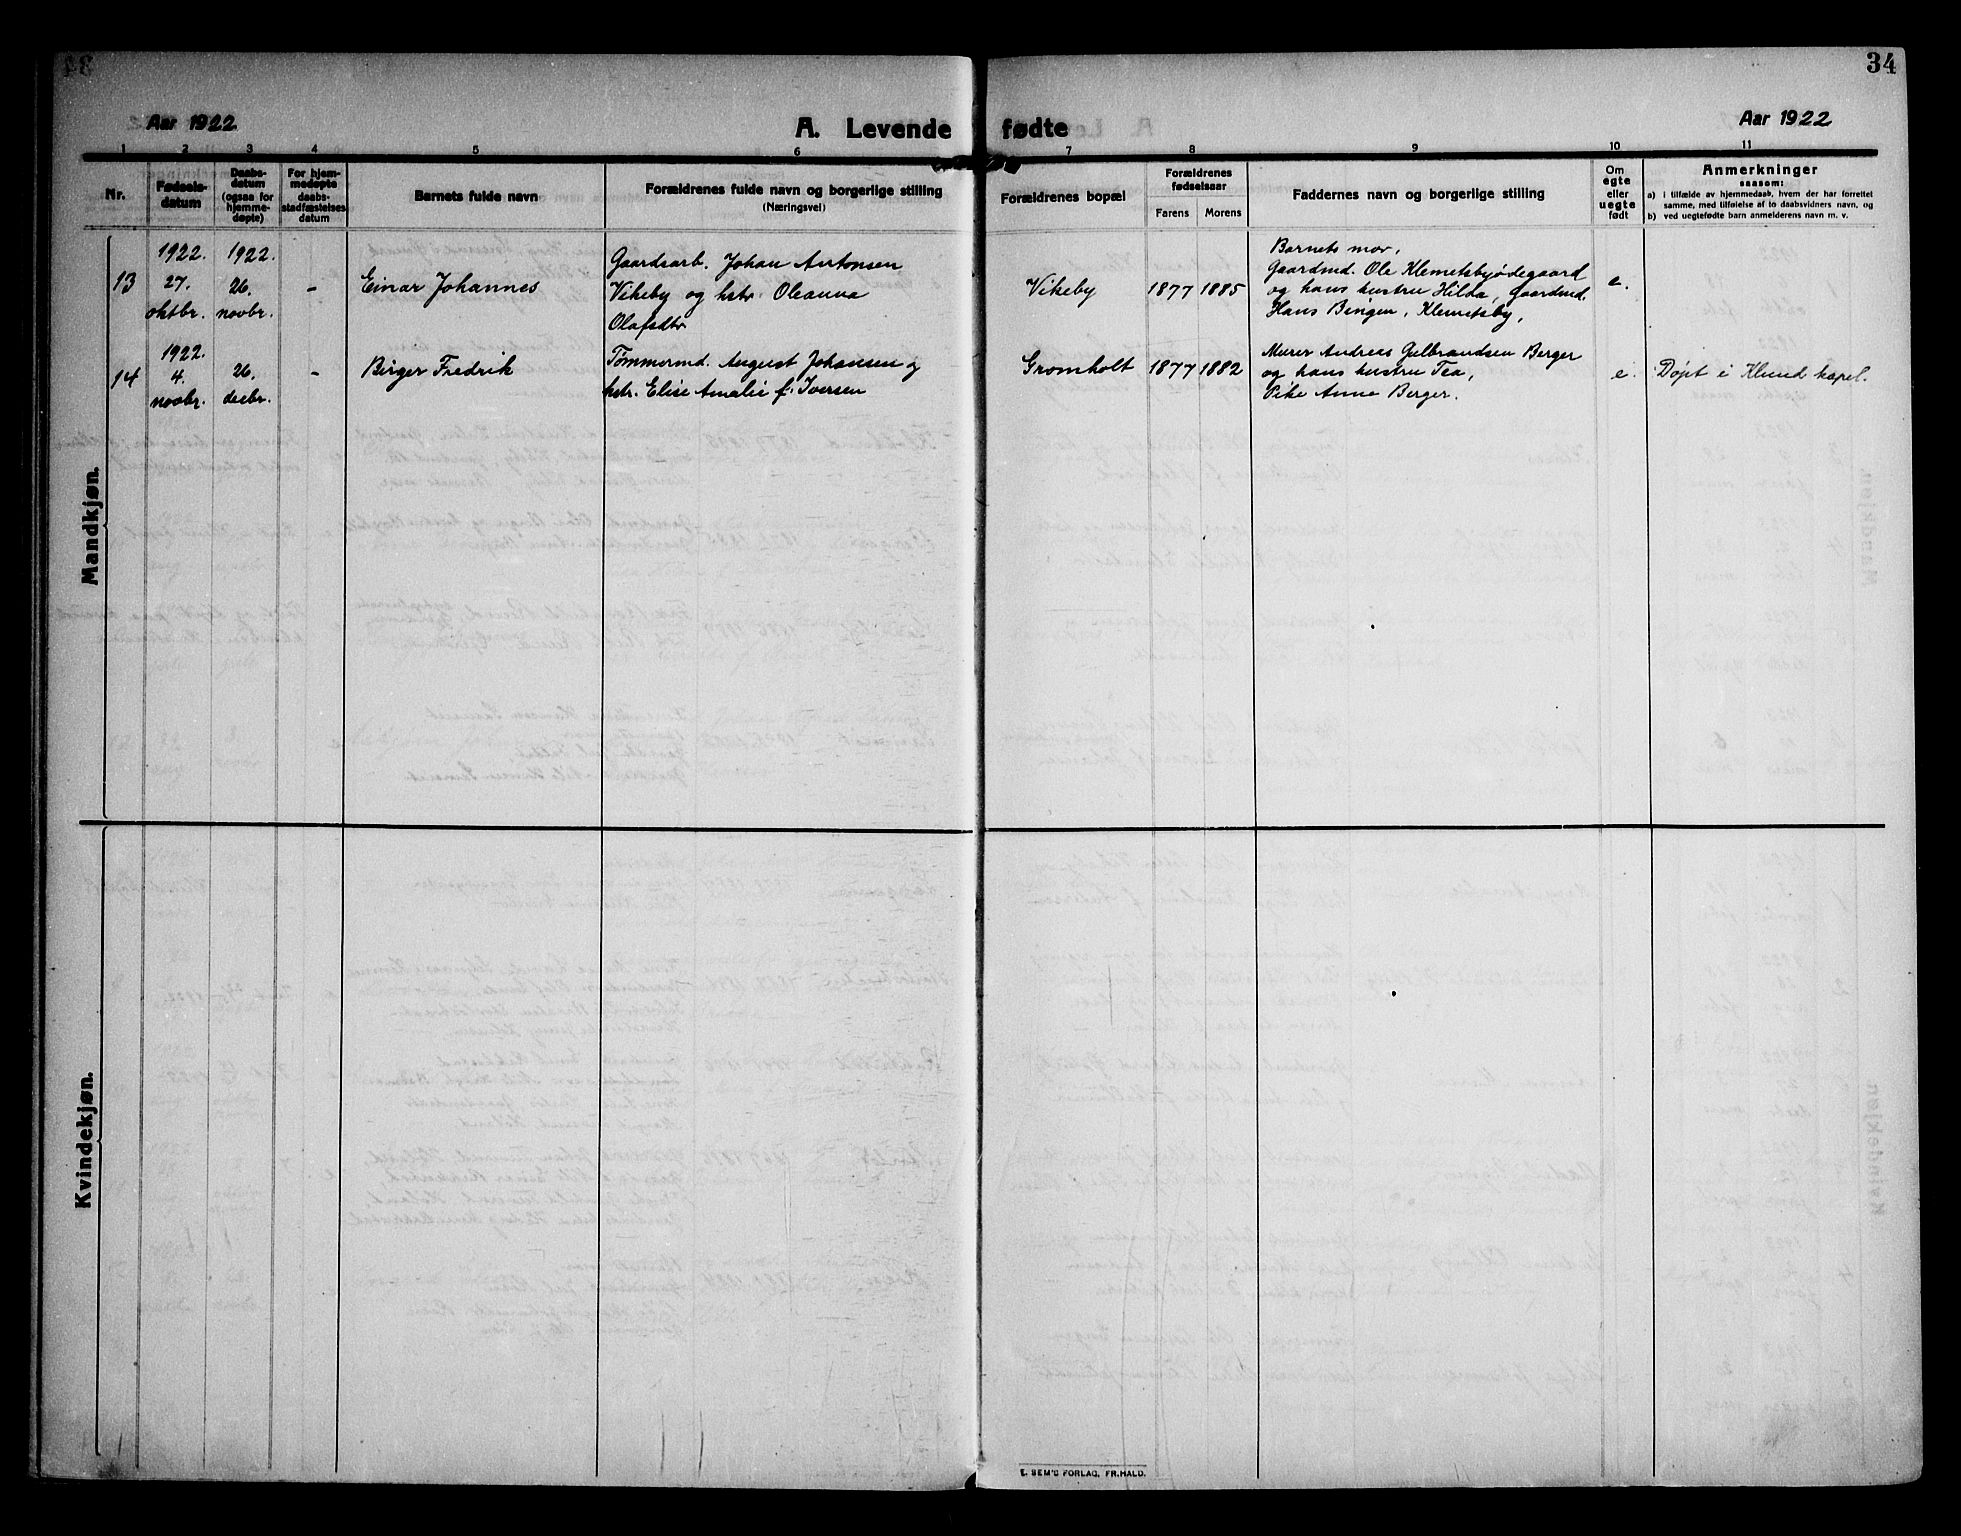 34
Aar 1922
A. Levende fødte
Aar 1922
1 2 3 4 5 6 7 8 9 10 11
Nr.
Fødsels-
datum
Daabs-
datum
(ogsaa for
hjemme-
døpte)
For hjem-
medøpte
daabs-
stadfæstelses
datum
Barnets fulde navn
Forældrenes fulde navn og borgerlige stilling
(Næringsvei)
Forældrenes bopæl
Forældrenes
fødselsaar
Farens Morens
Faddernes navn og borgerlige stilling
Om
egte
eller
uegte
født
Anmerkninger
saasom:
a) i tilfælde av hjemmedaab, hvem der har forrettet
samme, med tilføielse af to daabsvidners navn, og
b) ved uegtefødte barn anmelderens navn m. v.
Mandkjøn.
13
1922.
27.
oktbr.
1922.
26.
novbr.
-
Einar Johannes
Gaardsarb. Johan Antonsen
Vikeby og hstr. Oleanna
Olafsdtr
Vikeby
1877 1885
Barnets mor,
Gaardmd. Ole Klemetsbyødegaard
og hans hustru Hilda, Gaardmd.
Hans Bingen, Klemetsby,
e.
14
1922.
4.
novbr.
26.
decbr.
-
Birger Fredrik
Tømmermd. August Johansen og
hstr. Elise Amalie f. Iversen
Gromholt
1877 1882
Murer Andreas Gulbrandsen Berger
og hans hustru Tea,
Pike Anna Berger.
e.
Døpt i Klund kapel.
Kvindekjøn.
E. SEM'S FORLAG, FR.HALD.